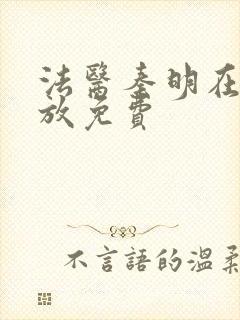 法醫秦明在
放免費
不言語的溫柔